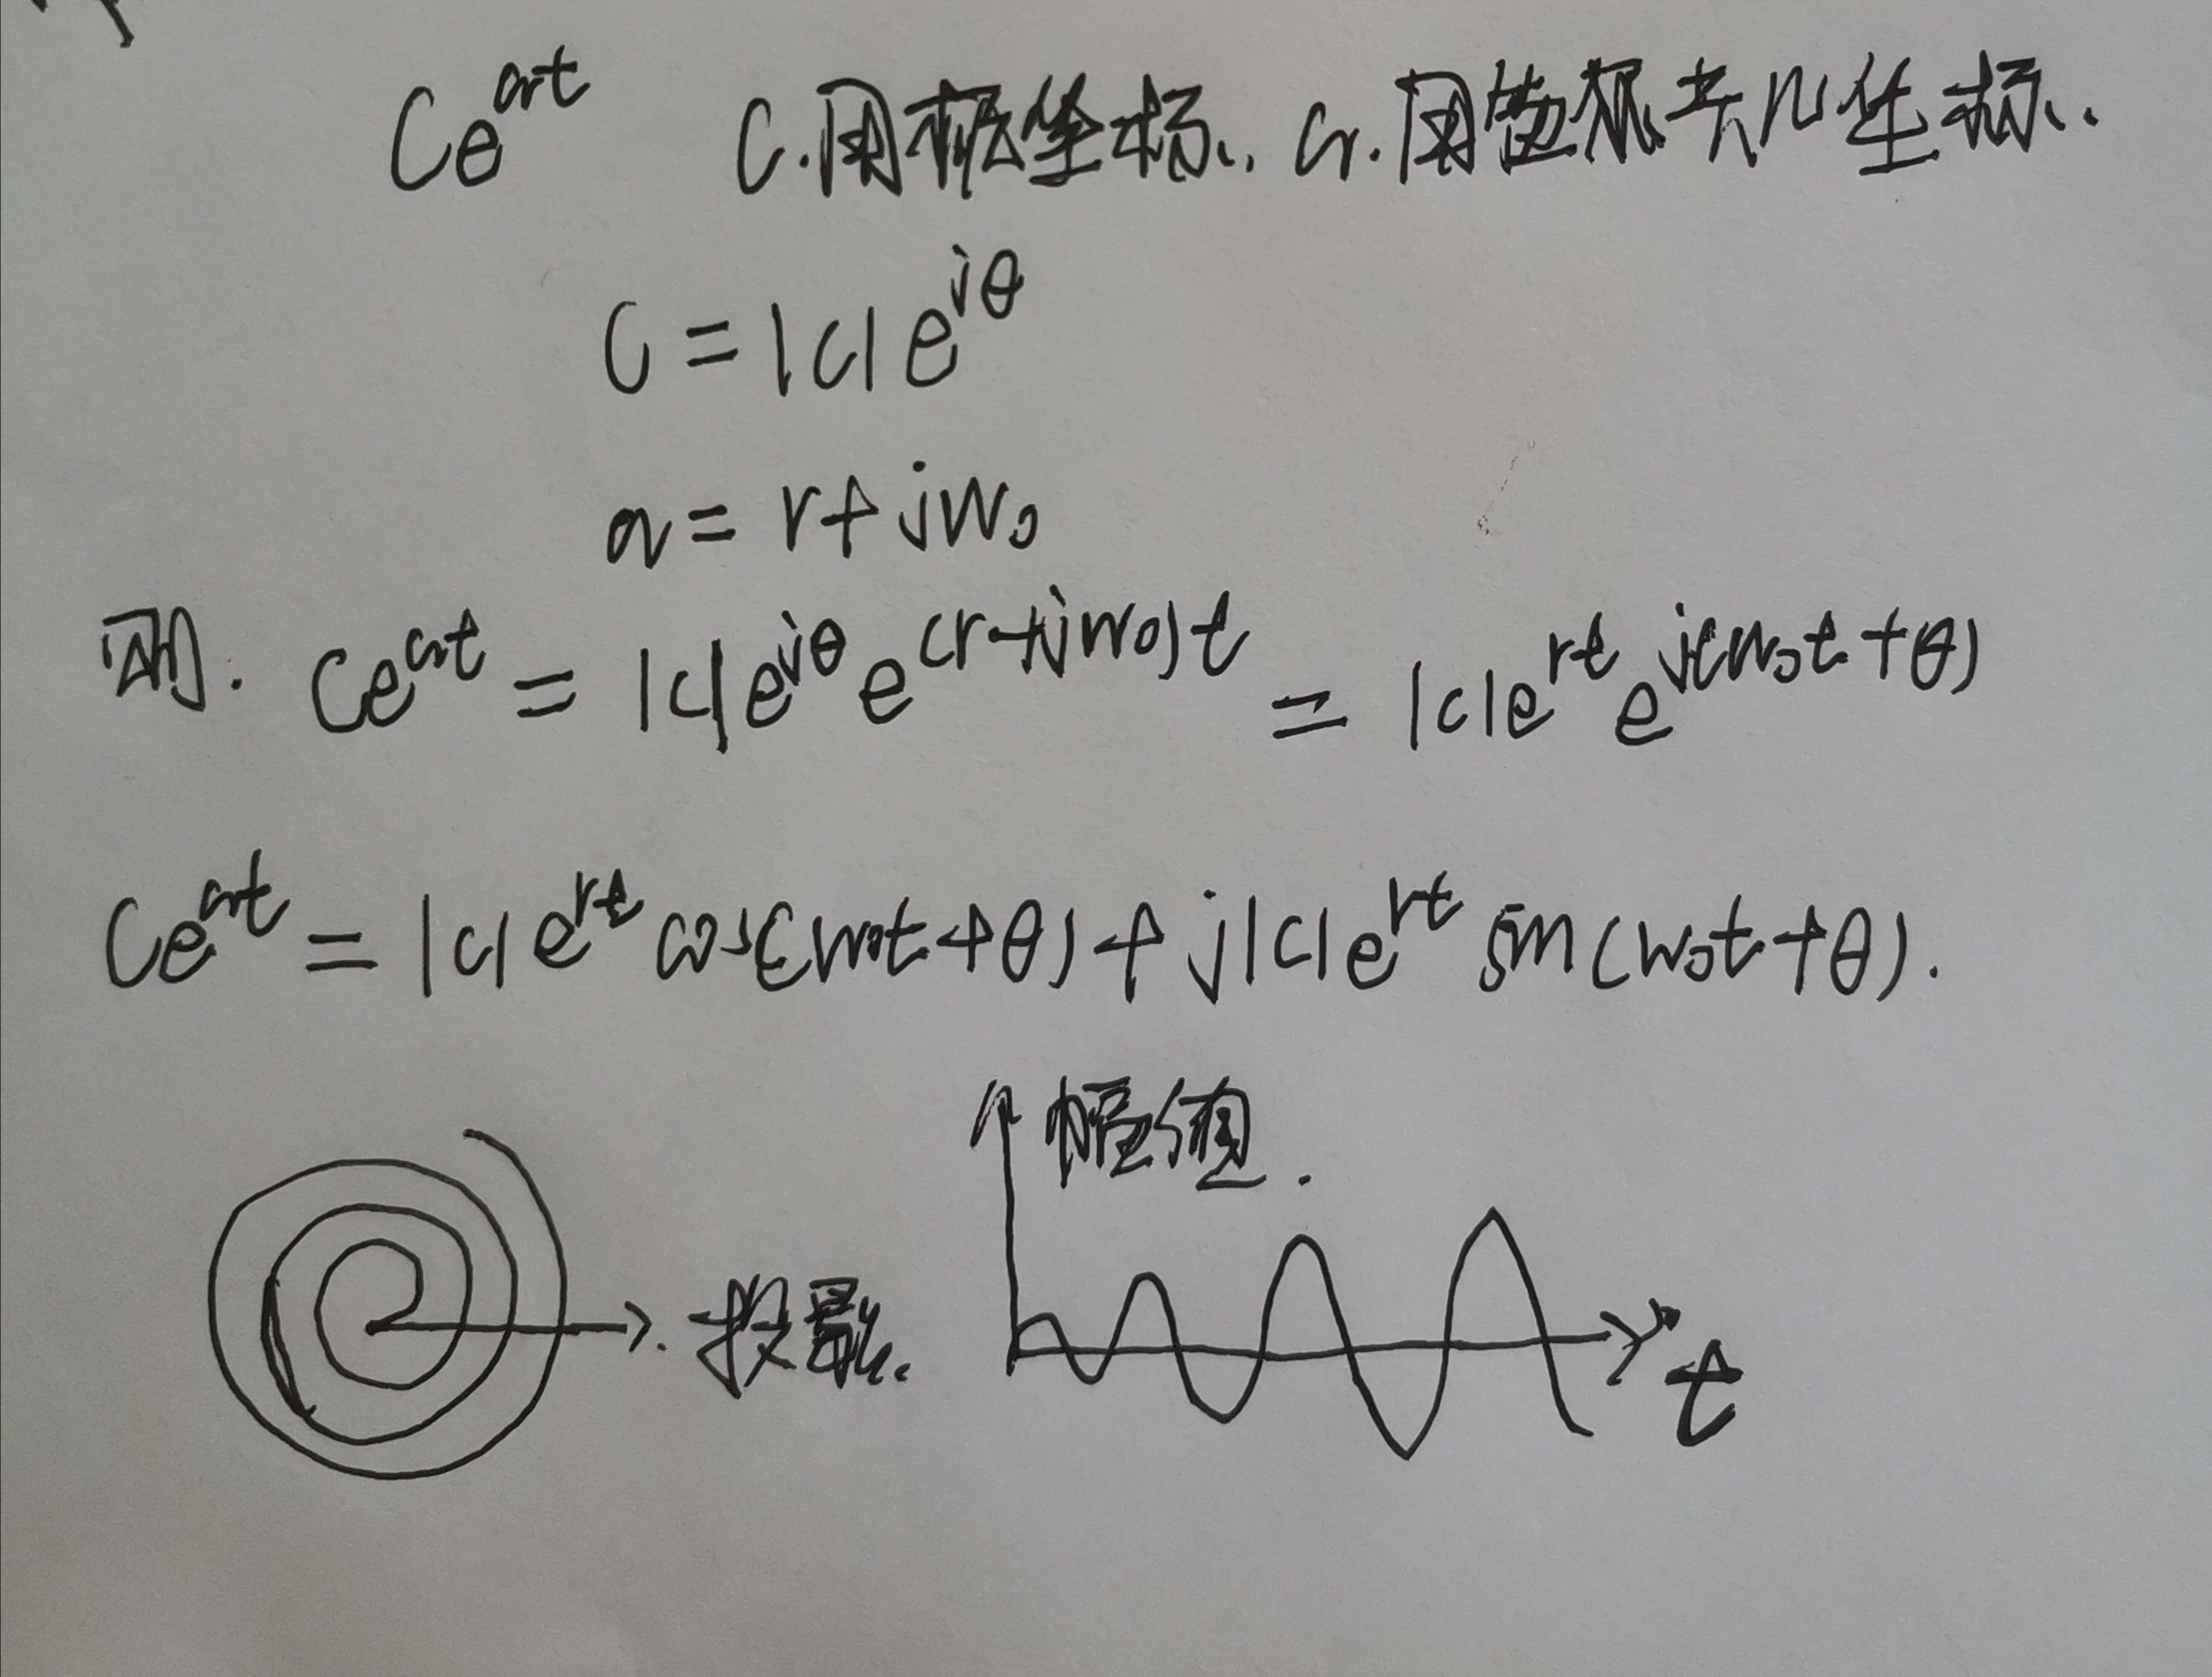 Ce^{at} C.用极坐标. a.用笛卡尔坐标.
C = |c|e^{jθ}
a = r + jw₀
则. Ce^{at} = |c|e^{jθ}e^{(r+jw₀)t} = |c|e^{rt}e^{j(w₀t+θ)}
Ce^{at} = |c|e^{rt}cos(w₀t+θ) + j|c|e^{rt}sin(w₀t+θ).
幅值.
投影.
t